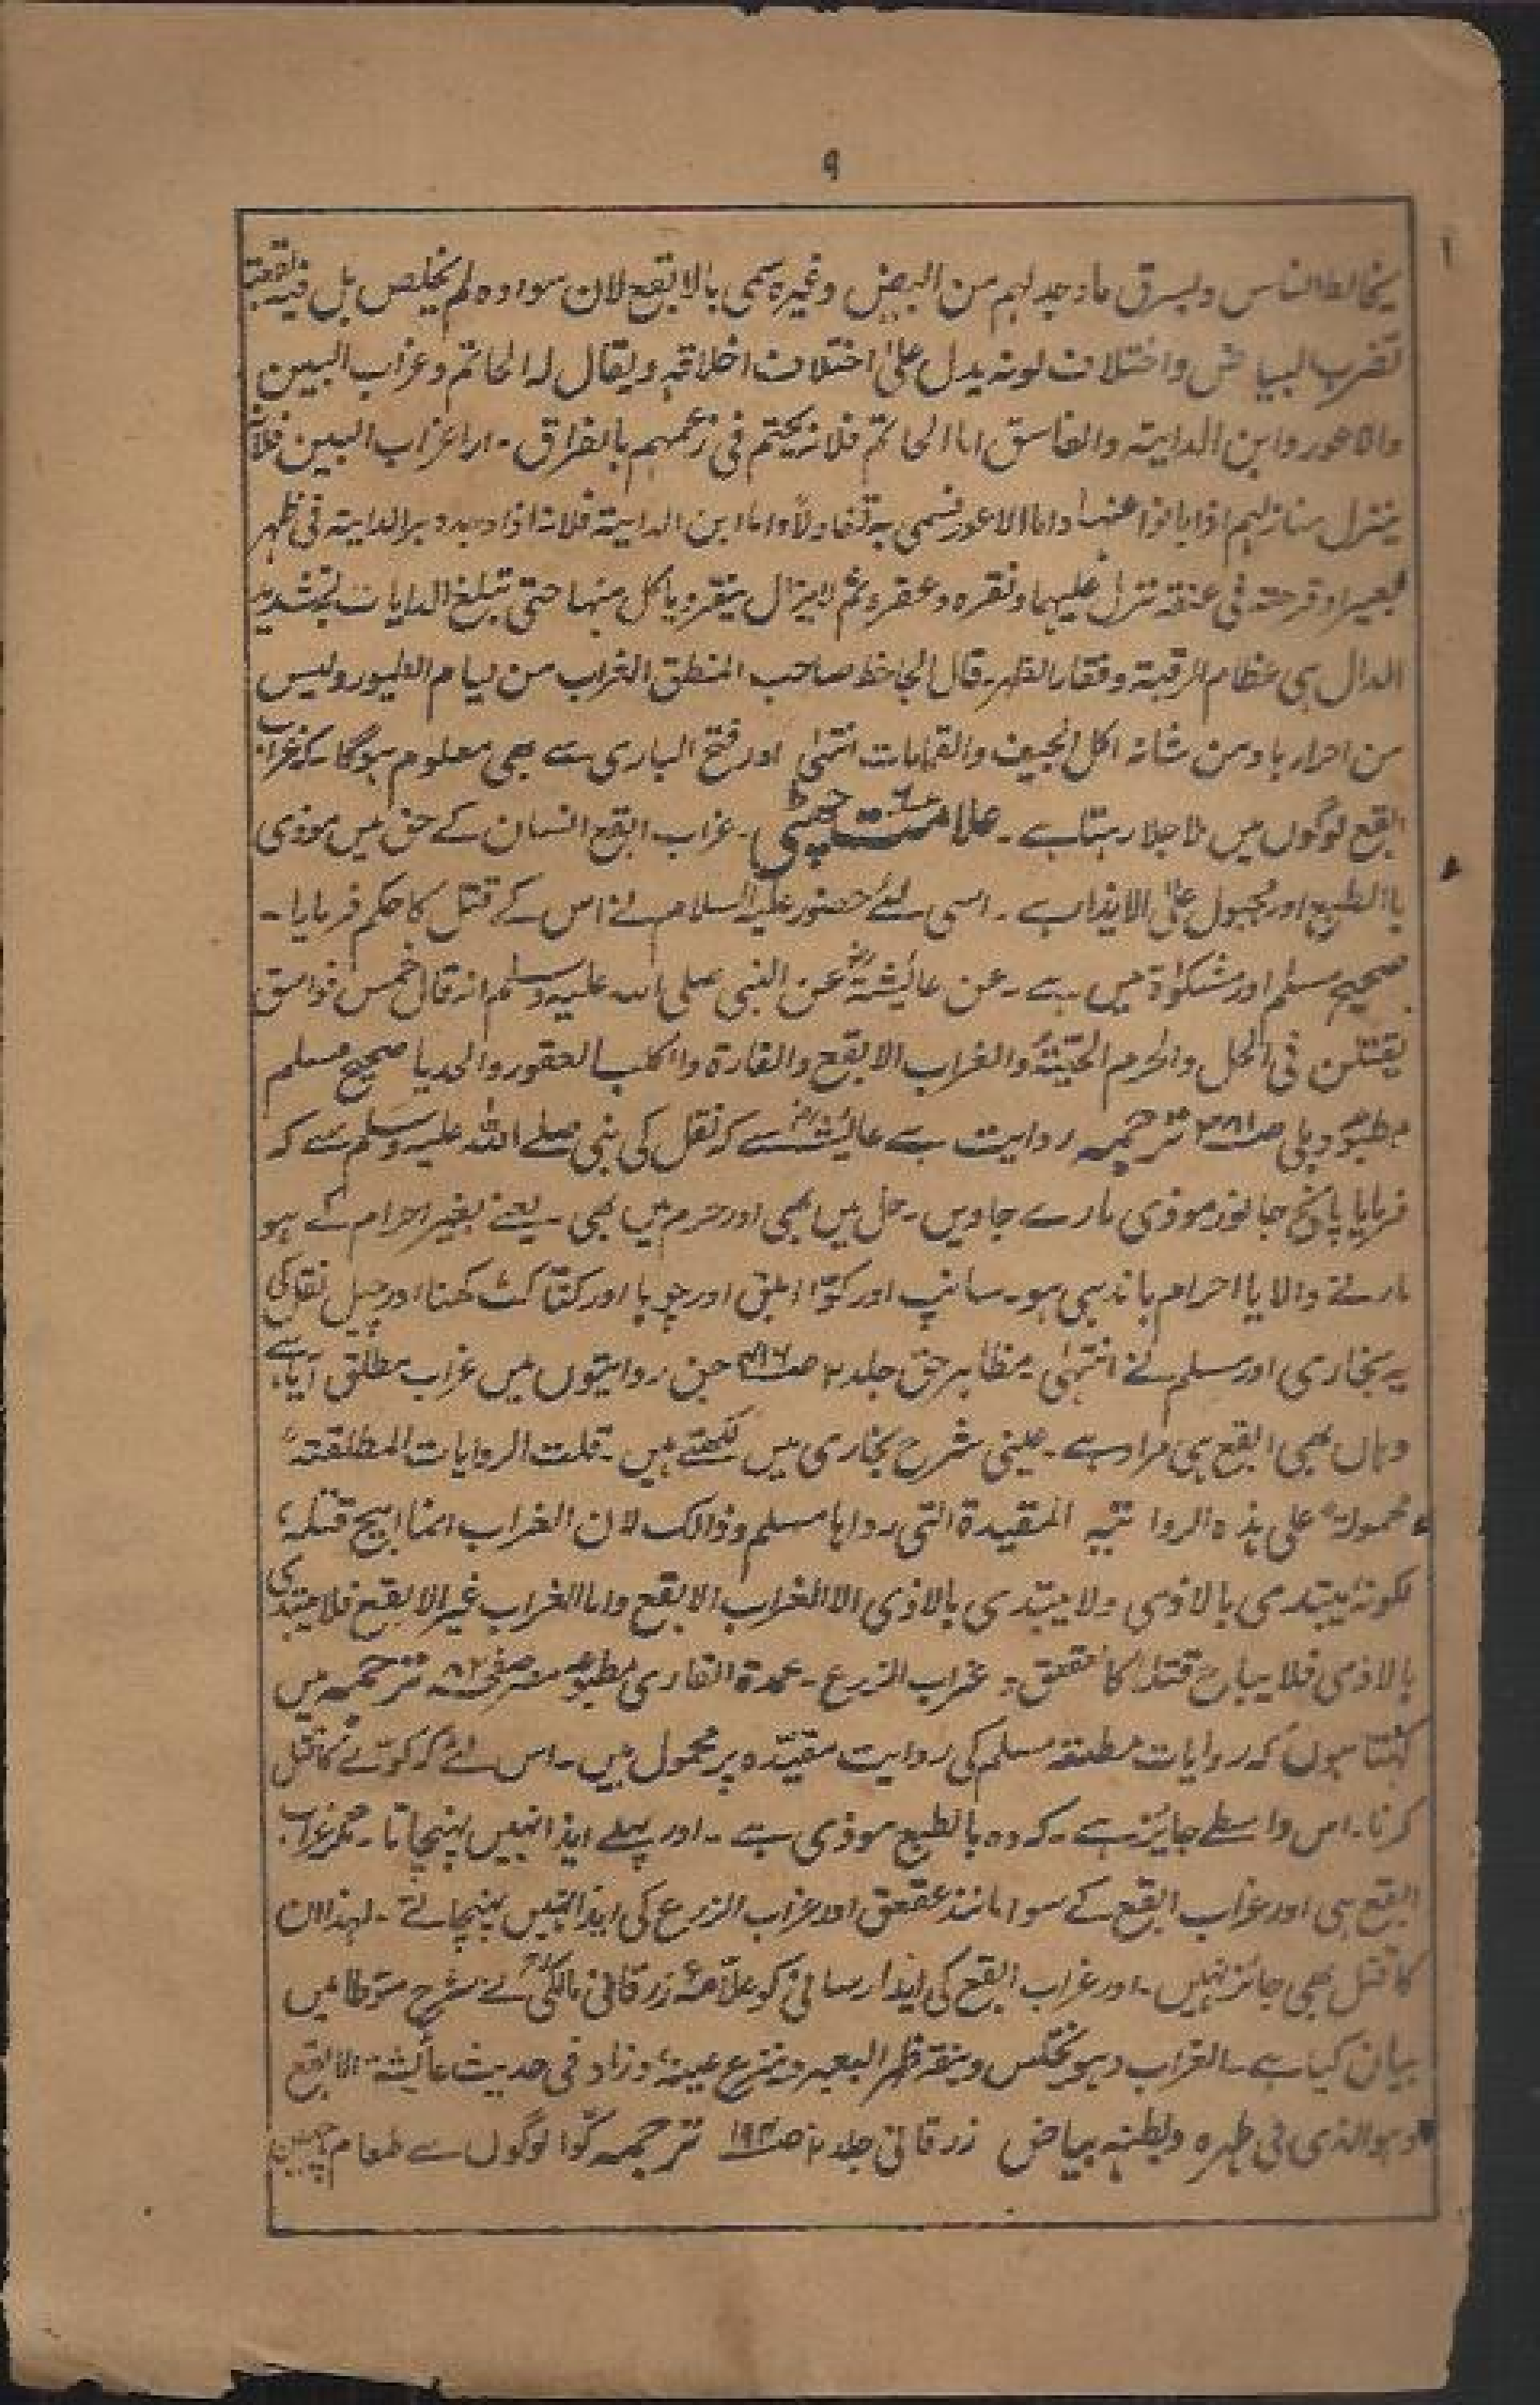 ۹
یخالط الناس ویسرق ما وجد لہم من البیض وغیرہ سمی بالابقع لان سوادہ لم یخلص بل فیہ بقعۃ
تضرب لبیاض واختلاف لونہ یدل علیٰ اختلاف اخلاقہ ویقال لہ الحاتم وغراب البین
والاعور وابن الدایتہ والفاسق اما الحاتم فلانہ یحتم فی زعمہم بالفراق۔ اما غراب البین فلانہ
ینزل منازلہم اذا بانوا عنہا واما الاعور فسمی بہ تفاولاً واما ابن الدایۃ فلانہ اذا وجد دبر الدایتہ فی ظہر
البعیر او قرحتہ فی عنقہ نزل علیہما ونقرہ وعقرہ ثم لا یزال ینقر ویاکل منہا حتی تبلغ الدایات بتشدید
الدال ہی عظام الرقبۃ وفقار الظہر۔ قال الجاحظ صاحب المنطق الغراب من لیام الطیور ولیس
من احرارہا ومن شانہ اکل الجیف والقمامات انتہیٰ اور فتح الباری سے بھی معلوم ہوگا۔ کہ غراب
ابقع لوگوں میں ملا جلا رہتا ہے۔ علامت چھٹی ۶۔ غراب ابقع انسان کے حق میں موذی
بالطبع اور مجبول علی الایذا ہے۔ اسی لئے حضور علیہ السلام نے اس کے قتل کا حکم فرمایا۔
صحیح مسلم اور مشکوٰۃ میں ہے۔ عن عائیشۃؓ عن النبی صلی اللہ علیہ وسلم انہ قال خمس فواسق
یقتلن فی الحل والحرم الحیّۃُ والغراب الابقع والفارۃ والکلب العقور والحدیا صحیح مسلم
مطبوعہ دہلی صـ۳۸۱ ترجمہ روایت ہے عائیشہؓ سے کہ نقل کی نبی صلے اللہ علیہ وسلم سے کہ
فرمایا پانچ جانور موذی مارے جاویں۔ حل میں بھی اور حرم میں بھی۔ یعنے بغیر احرام کے ہو
مارنے والا یا احرام باندہی ہو۔ سانپ اور کوّا ابلق اور چوہا اور کتّا کٹ کھنا اور چیل نقل کی
یہ بخاری اور مسلم نے انتہیٰ۔ مظاہر حق جلد ۲ جن روایتوں میں غراب مطلق آیا ہے
وہاں بھی ابقع ہی مراد ہے۔ عینی شرح بخاری میں لکھتے ہیں۔ قلت الروایات المطلقتہ
محمولۃ علی ہذہ الروا یتہ المقیدۃ التی رواہا مسلم وذالک لان الغراب انما ابیح قتلہ
لکونہٖ یبتدی بالاذی ولا یبتدی بالاذی الا الغراب الابقع واما الغراب غیر الابقع فلا یبتدی
بالاذی فلا یباح قتلہٗ کا لعقعق و غراب الزرع۔ عمدۃ القاری مطبوعہ مصر ترجمہ میں
کہتا ہوں کہ روایات مطلقہ مسلم کی روایت مقیّدہ پر محمول ہیں۔ اس لئے کہ کوّے کا قتل
کرنا۔ اس واسطے جائز ہے۔ کہ وہ بالطبع موذی ہے۔ اور پہلے ایذا نہیں پہنچاتا۔ مگر غراب
ابقع ہی اور غراب ابقع کے سوا مانند عقعق اور غراب الزرع کی ایذا نہیں پہنچاتے۔ لہذا ان
کا قتل بھی جائز نہیں۔ اور غراب ابقع کی ایذا رسانی کو علّامہ زرقانی مالکیؒ نے شرح موطا میں
بیان کیا ہے۔ الغراب وہو یختلس وینقر ظہر البعیر وینزع عینہٗ وزاد فی حدیث عائیشۃ الابقع
وہو الذی فی ظہرہ وبطنہ بیاض زرقانی جلد ۲ صـ۱۹۴ ترجمہ کوّا لوگوں سے طعام چھین